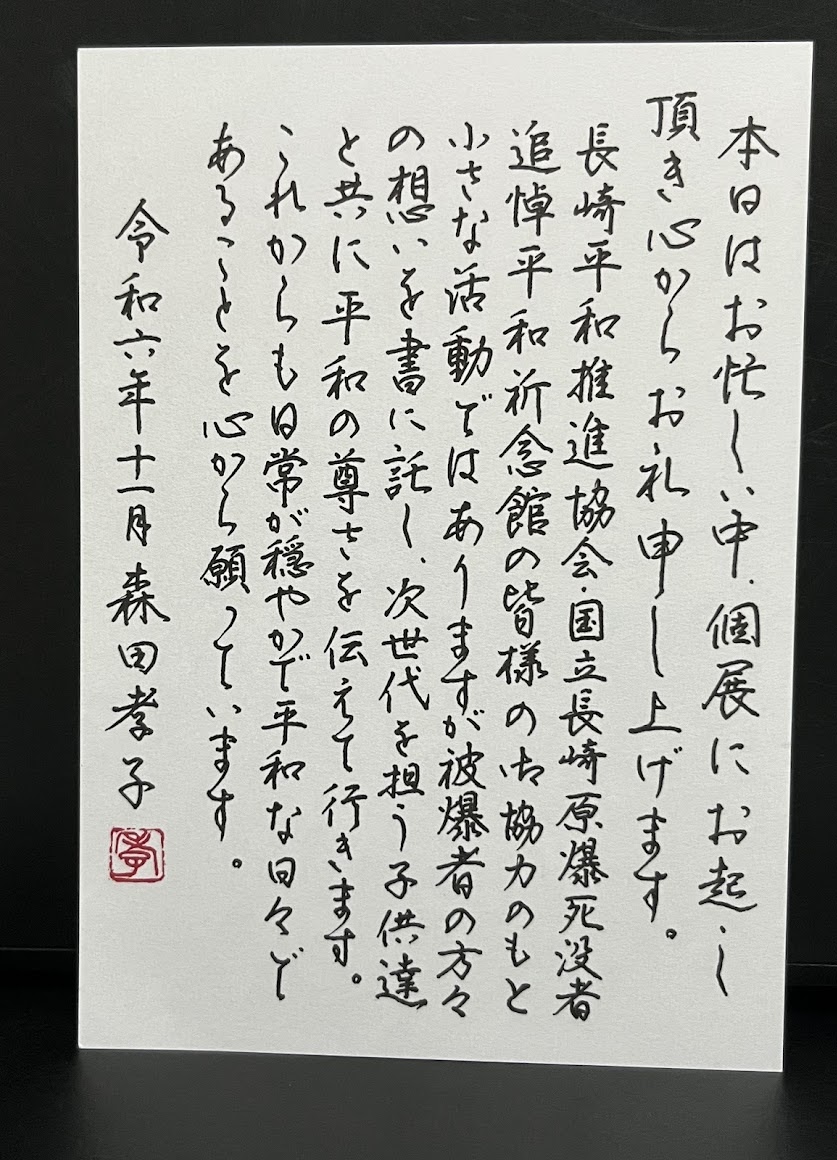 本日はお忙しい中、個展にお起こし
頂き心からお礼申し上げます。
長崎平和推進協会・国立長崎原爆死没者
追悼平和祈念館の皆様の御協力のもと
小さな活動ではありますが被爆者の方々
の想いを書に託し、次世代を担う子供達
と共に平和の尊さを伝えて行きます。
これからも日常が穏やかで平和な日々で
あることを心から願っています。
令和六年十一月 森田孝子
孝